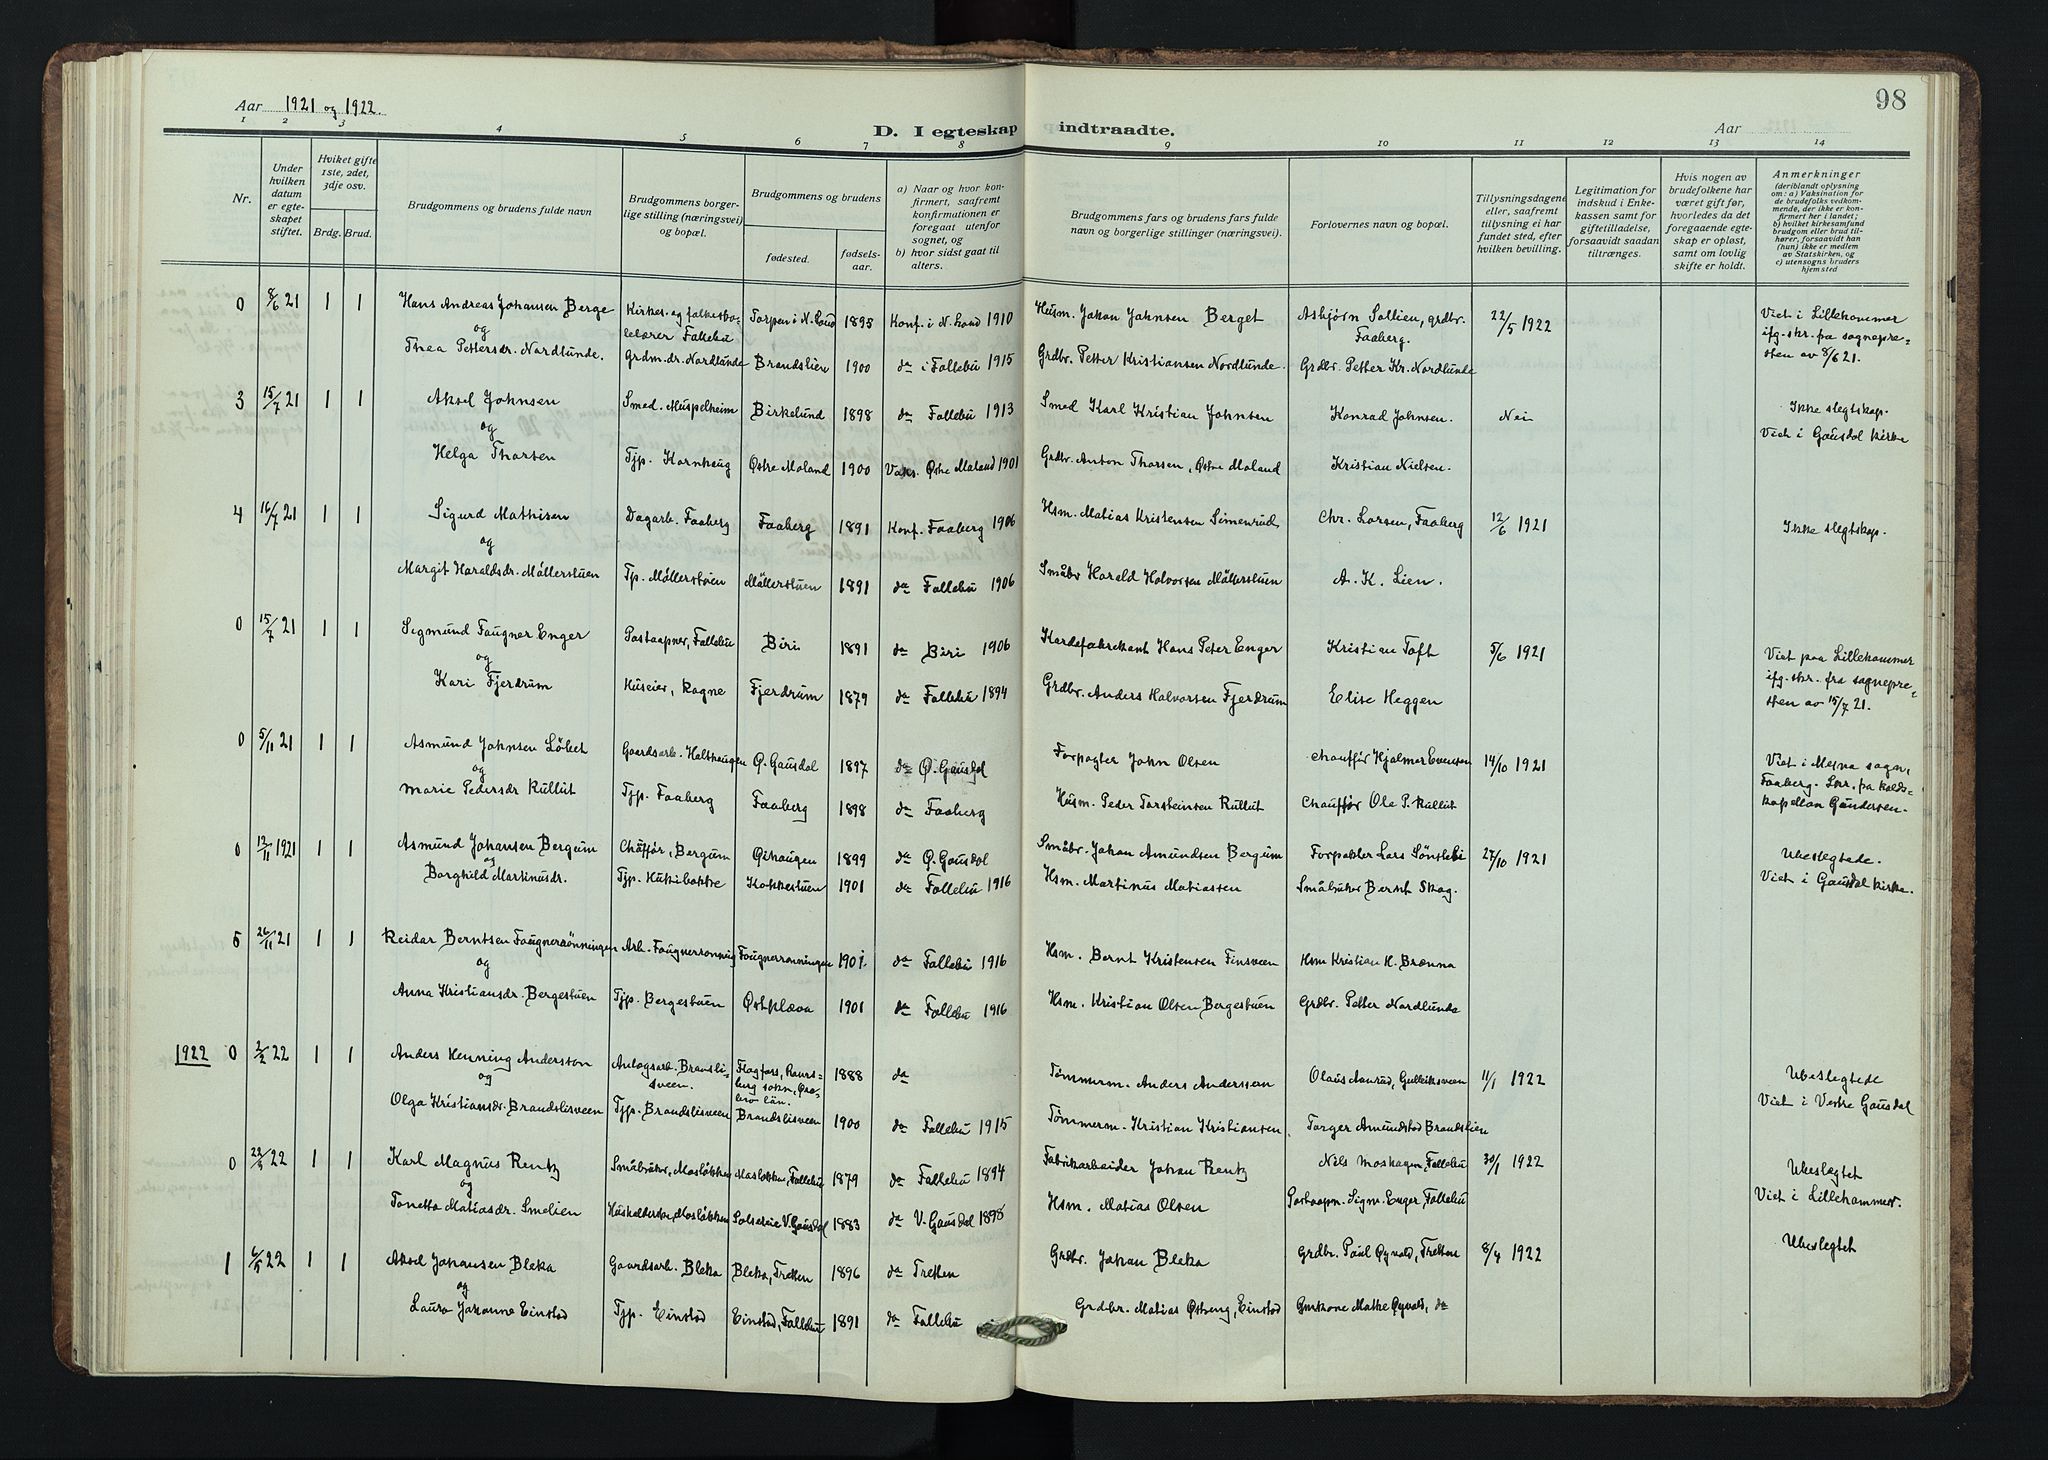 98
Aar 1921 og 1922.
D. I egteskap indtraadte.
Aar
1 2 3 4 5 6 7 8 9 10 11 12 13 14
Nr.
Under hvilken datum er egteskapet stiftet.
Hviket gifte 1ste, 2det, 3dje osv.
Brdg. Brud.
Brudgommens og brudens fulde navn
Brudgommens borgerlige stilling (næringsvei) og bopæl.
Brudgommens og brudens
fødested.
fødselsaar.
a) Naar og hvor konfirmert, saafremt konfirmationen er foregaat utenfor sognet, og
b) hvor sidst gaat til alters.
Brudgommens fars og brudens fars fulde navn og borgerlige stillinger (næringsvei).
Forlovernes navn og bopæl.
Tillysningsdagene eller, saafremt tillysning ei har fundet sted, efter hvilken bevilling.
Legitimation for indskud i Enkekassen samt for giftetilladelse, forsaavidt saadan tiltrænges.
Hvis nogen av brudefolkene har været gift før, hvorledes da det foregaaende egteskap er opløst, samt om lovlig skifte er holdt.
Anmerkninger
(deriblandt oplysning om: a) Vaksination for de brudefolks vedkommende, der ikke er konfirmert her i landet; b) hvilket kirkesamfund brudgom eller brud tilhører, forsaavidt han (hun) ikke er medlem av Statskirken, og c) utensogns bruders hjemsted
0 8/6 21 1 1 Hans Andreas Johansen Berge Kirkes. og folkesko- Torpen i N. Land 1895 Konf. i N. Land 1910 Husm. Johan Johnsen Berget Asbjörn Sollien, grdbr. 22/5 1922 Viet i Lillehammer
og lærer Follebu Faaberg. ifg. skr. fra sognepre-
Thea Pettersdr. Nordlunde. grdm. dr. Nordlunde Brandslien 1900 do i Follebu 1915 Grdbr. Petter Kristiansen Nordlunde. Grdbr. Petter Kr. Nordlunde sten av 8/6 21.
3 15/7 21 1 1 Aksel Johnsen Smed. Muspelheim Birkelund 1898 do Follebu 1913 Smed Karl Kristian Johnsen Konrad Johnsen. Nei Ikke slegtskap.
og Viet i Gausdal kirke
Helga Thorsen Tjp. Kornhaug Østre Moland 1900 Vaks. Østre Moland 1901 Grdbr. Anton Thorsen, Østre Moland Kristian Nielsen.
4 16/7 21 1 1 Sigurd Mathisen Dagarb. Faaberg Faaberg 1891 Konf. Faaberg 1906 Hsm. Matias Kristensen Simenrud Chr. Larsen, Faaberg 12/6 1921 Ikke slegtskap.
og
Margit Haraldsdr. Möllerstuen Tp. Möllerstuen Möllerstuen 1891 do Follebu 1906 Småbr Harald Halvorsen Möllerstuen A. K. Lien.
0 15/7 21 1 1 Sigmund Faugner Enger Postaapner, Follebu Biri 1891 do Biri 1906 Kardefabrikant Hans Peter Enger Kristian Toft 5/6 1921 Viet paa Lillehammer
og ifg. skr. fra sognepre-
Kari Fjerdrum Huseier, Ragne Fjerdrum 1879 do Follebu 1894 Grdbr. Anders Halvorsen Fjerdrum Elise Heggen sten av 15/7 21.
0 5/11 21 1 1 Asmund Johnsen Löket Gaardsarb. Holthaugen Ø. Gausdal 1897 do Ø. Gausdal Forpagter John Olsen Chauffør Hjalmar Evensen 14/10 1921 Viet i Mesna sogn,
og Faaberg.
Marie Pedersdr Rullut Tjp. Faaberg Faaberg 1898 do Faaberg Husm. Peder Torsteinsen Rullut Chauffør Ole P. Rullut kapellan Gundersen.
0 12/11 1921 1 1 Asmund Johansen Bergum Chåffør, Bergum Øihaugen 1899 do Ø. Gausdal Småbr. Johan Amundsen Bergum Forpakter Lars 27/10 1921 Ubeslegtede.
og Viet i Gausdal kirke.
Borghild Martinusdr. Tjp. Kukibakke Kokkestuen 1901 do Follebu 1916 Hsm. Martinus Matiassen Småbruker Bernt Skog.
5 26/11 21 1 1 Reidar Berntsen Faugnerrönningen Arb. Faugnerrönning Faugnerrønningen 1901 do Follebu 1916 Hsm. Bernt Kristensen Finsveen Hsm Kristian H. Brænna
og
Anna Kristiansdr. Bergestuen Tjp. Bergestuen Østplæva 1901 do Follebu 1916 Hsm. Kristian Olsen Bergestuen Grdbr. Petter Nordlunde
1922 0 2/2 22 1 1 Anders Henning Andersson Anlegsarb. Bransli- Flogfors, 1888 do Tømmerm. Anders Anderssen Olaus Aanrud, Gulleiksveen 11/1 1922 Ubeslegtede
og sveen. län. Viet i Vestre Gausdal
Olga Kristiansdr. Brandslisveen Tjp. Brandslisveen Brandslisveen 1900 do Follebu 1915 Tømmerm. Kristian Kristiansen Torger Amundstad Brandslien
0 1 1 Karl Magnus Rentz Småbruker, Mosløkken Mosløkken, Follebu 1879 do Follebu 1894 Fabrikarbeider Johan Rentz Nils Moshagen, Follebu 30/1 1922 Ubeslegtet
og Viet i Lillehammer.
Tonetta Matiasdr. Smelien Husholderske, Mosløkken V. Gausdal 1883 do V. Gausdal 1898 Hsm. Matias Olsen Postaapn. Sigm. Enger, Follebu
1 22 1 1 Aksel Johansen Bleka Gaardsarb. Bleka Bleka, Tretten 1896 do Tretten Grdbr. Johan Bleka Grdbr. Paul Øyvold, Tretten 8/4 1922 Ubeslegtet
og
Laura Johanne Einstad Tjp. Einstad Einstad, Follebu 1891 do Follebu Grdbr. Matias Østeng, Einstad Grmkone Mathe Øyvold, do